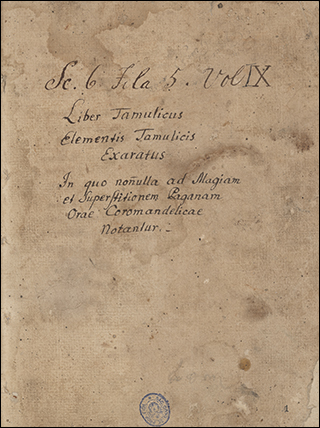 Sc. 6 Fila 5. Vol IX
Liber Tamulicus
Elementis Tamulicis
Exaratus
In quo noñulla ad Magiam
et Superstitionem Paganam
Orae Coromandelicae
Notantur.-